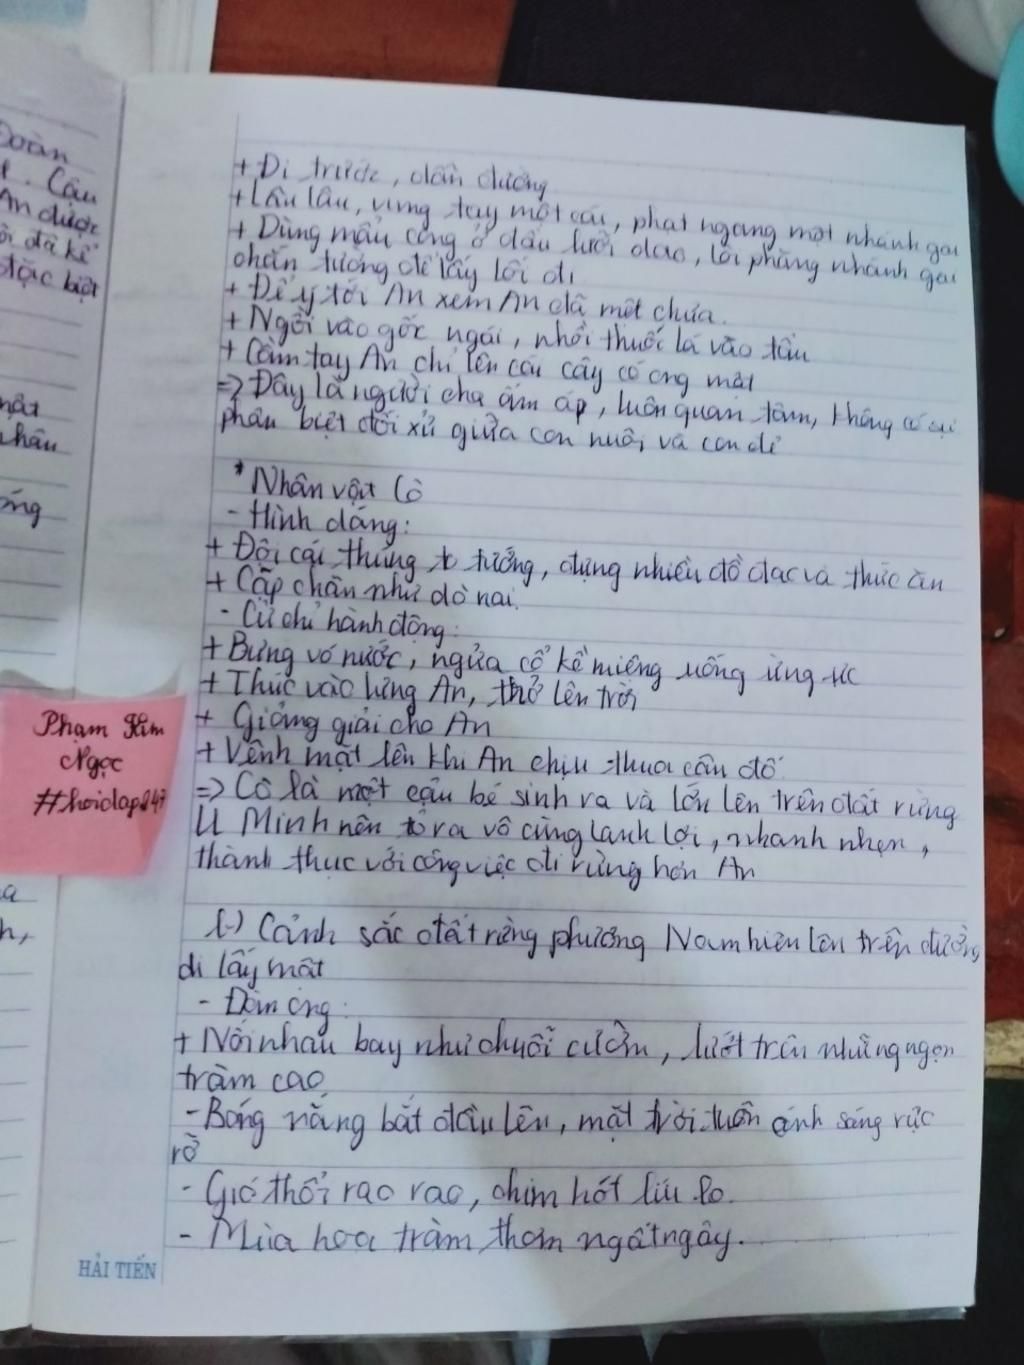 Đoàn
Cậu
An được
đã kể
đặc biệt
nhân
+ Đi trước, dẫn đường
+ Lâu lâu, vung tay một cái, phạt ngang một nhánh gai
+ Dùng mẫu cong ở đầu lưỡi dao, lôi phăng nhánh gai
chắn tương để lấy lối đi
+ Để ý tới An xem An đã mệt chưa.
+ Ngồi vào gốc ngái, nhồi thuốc lá vào tẩu
+ Cầm tay An chỉ lên cái cây có ong mật
=> Đây là người cha ấm áp, luôn quan tâm, không có sự
phân biệt đối xử giữa con nuôi và con đẻ
* Nhân vật Cò
- Hình dáng:
+ Đội cái thúng to tướng, đựng nhiều đồ đạc và thức ăn
+ Cặp chân như dò nai.
- Cử chỉ hành động:
+ Bưng vó nước, ngửa cổ kề miệng uống ừng ực
+ Thúc vào lưng An, thở lên trời
+ Giảng giải cho An
+ Vênh mặt lên khi An chịu thua câu đố
=> Cò là một cậu bé sinh ra và lớn lên trên đất rừng
U Minh nên tỏ ra vô cùng lanh lợi, nhanh nhẹn,
thành thục với công việc đi rừng hơn An
Cảnh sắc đất rừng phương Nam hiện lên trên đường
đi lấy mật
- Đàn ong:
+ Nối nhau bay như chuỗi cườm, lướt trên những ngọn
tràm cao
- Bóng nắng bắt đầu lên, mặt trời tuôn ánh sáng rực
rỡ
- Gió thổi rao rao, chim hót líu lo.
- Mùa hoa tràm thơm ngất ngây.
Phạm Kim
Ngọc
#hoidap247
HẢI TIẾN